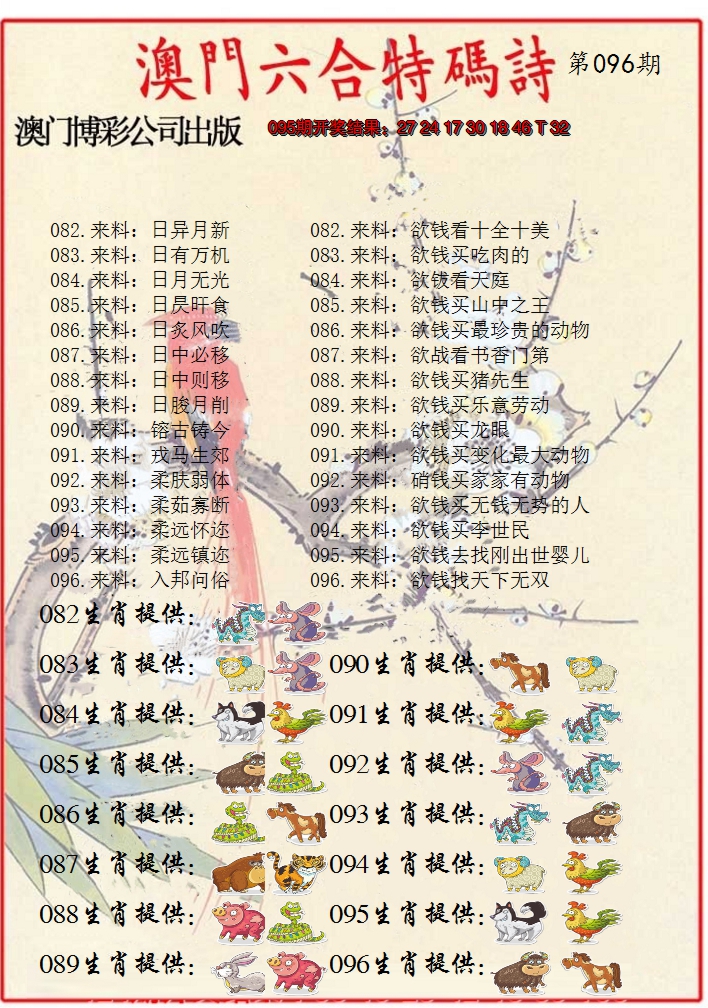 澳門六合特碼詩 第096期
澳门博彩公司出版 095期开奖结果：27 24 17 30 18 46 T 32
082.来料：日异月新 082.来料：欲钱看十全十美
083.来料：日有万机 083.来料：欲钱买吃肉的
084.来料：日月无光 084.来料：欲钱看天庭
085.来料：日昃旰食 085.来料：欲钱买山中之王
086.来料：日炙风吹 086.来料：欲钱买最珍贵的动物
087.来料：日中必移 087.来料：欲战看书香门第
088.来料：日中则移 088.来料：欲钱买猪先生
089.来料：日朘月削 089.来料：欲钱买乐意劳动
090.来料：镕古铸今 090.来料：欲钱买龙眼
091.来料：戎马生郊 091.来料：欲钱买变化最大动物
092.来料：柔肤弱体 092.来料：硝钱买家家有动物
093.来料：柔茹寡断 093.来料：欲钱买无钱无势的人
094.来料：柔远怀迩 094.来料：欲钱买李世民
095.来料：柔远镇迩 095.来料：欲钱去找刚出世婴儿
096.来料：入邦问俗 096.来料：欲钱找天下无双
082生肖提供：
083生肖提供： 090生肖提供：
084生肖提供： 091生肖提供：
085生肖提供： 092生肖提供：
086生肖提供： 093生肖提供：
087生肖提供： 094生肖提供：
088生肖提供： 095生肖提供：
089生肖提供： 096生肖提供：